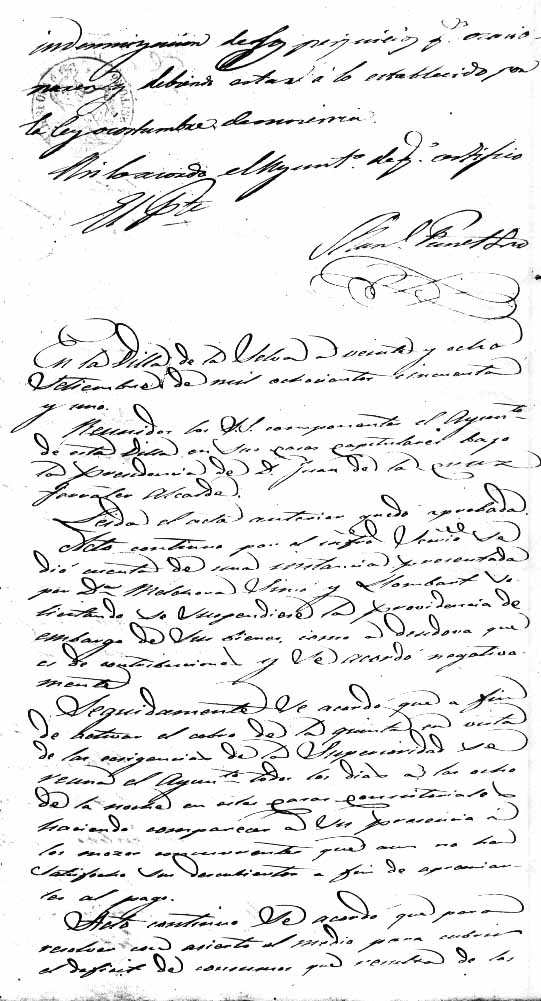 indemnización de los perjuicios q.e ocacio-
nasen y debiendo estar á lo establecido por
la ley o costumbre
Asi lo acordo el Ayunt.o de q.e certifico
El Pte
En la Villa de la Selva a veinte y ocho
Setiembre de mil ochocientos cincuenta
y uno.
Reunidos los S.S. componentes el Ayunt.o
de esta Villa en sus casas capitulares bajo
la Presidencia de D. Juan de la Cruz
Alcalde.
Leida el acta anterior quedó aprobada.
Acto continuo por el Señor se
dió cuenta de una instancia presentada
por D.na Melchora Simó y Llombart so-
licitando se suspendiese la providencia de
embargo de sus bienes, como a deudora que
es de contribuciones y se acordó negativa-
mente
Seguidamente se acordó que a fin
de activar el cobro de la quinta en vista
de las exigencias de la Superioridad se
reuna el Ayunt.o todos los dias a las ocho
de la noche en estas casas consistoriales
haciendo comparecer a su presencia á
los mozos concurrentes que aun no han
satisfecho sus descubiertos a fin de apremiar-
les al pago.
Acto continuo se acordó que para
resolver con acierto el medio para cubrir
el deficit de consumos que resulta de los